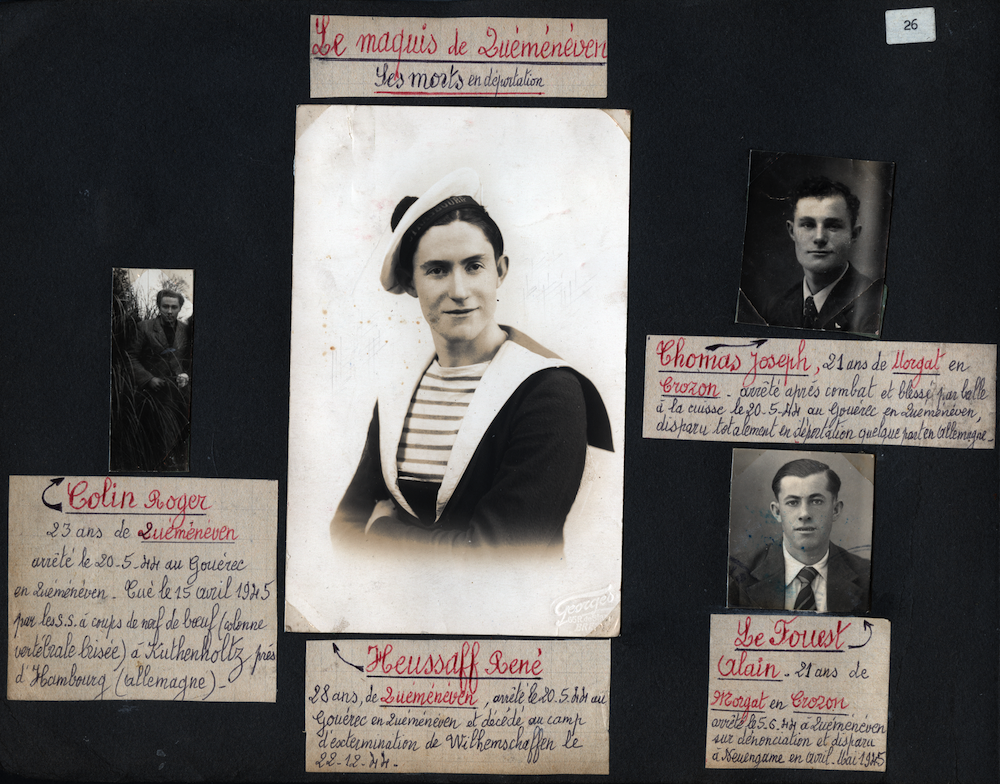 26
Le maquis de Quéménéven
Ses morts en déportation
Thomas Joseph, 21 ans de Morgat en
Crozon - arrêté après combat et blessé par balle
à la cuisse le 20-5-44 au Gouérec en Quéménéven,
disparu totalement en déportation quelque part en Allemagne -
Colin Roger
23 ans de Quéménéven
arrêté le 20-5-44 au Gouérec
en Quéménéven - Tué le 15 avril 1945
par les S.S. à coups de nerf de bœuf (colonne
vertébrale brisée) à Kuthenholtz, près
d'Hambourg (Allemagne) -
Georges
Heussaff René
28 ans, de Quéménéven, arrêté le 20.5.44 au
Gouérec en Quéménéven et décédé au camp
d'extermination de Wilhemschaffen le
22-12-44 -
Le Fouest
Alain - 21 ans de
Morgat en Crozon
arrêté le 5.6.44 à Quéménéven
sur dénonciation et disparu
à Neuengame en avril-Mai 1945